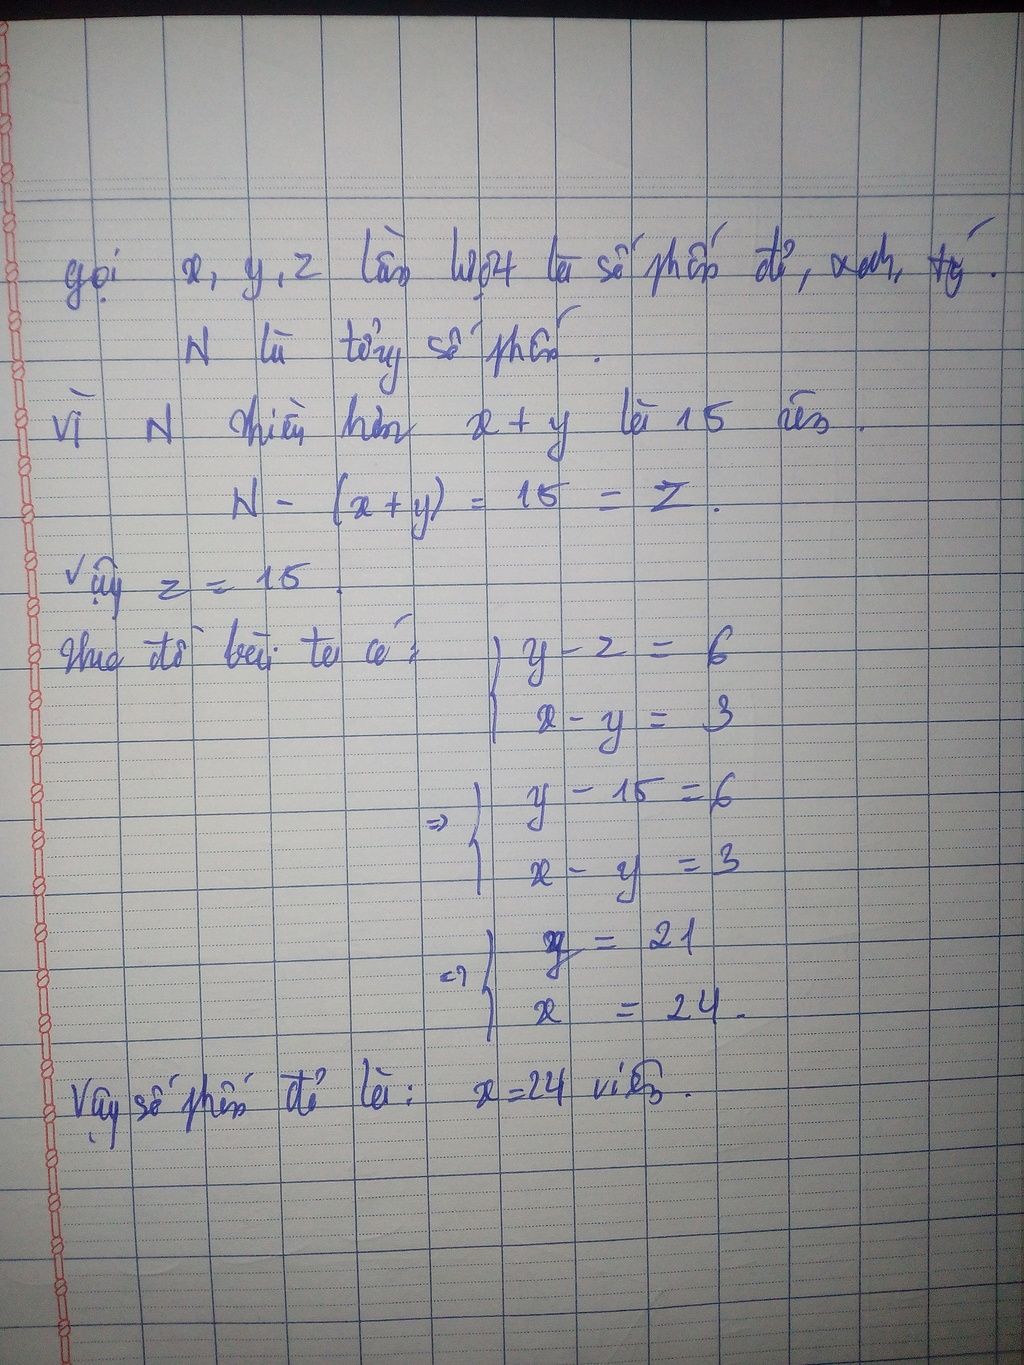 gọi x, y, z lần lượt là số phấn đỏ, xanh, trắng.
N là tổng số phấn.
Vì N nhiều hơn x + y là 15 nên.
N - (x + y) = 15 = z.
Vậy z = 15.
Theo đề bài ta có:
{ y - z = 6
x - y = 3
=> { y - 15 = 6
x - y = 3
=> { y = 21
x = 24.
Vậy số phấn đỏ là: x = 24 viên.